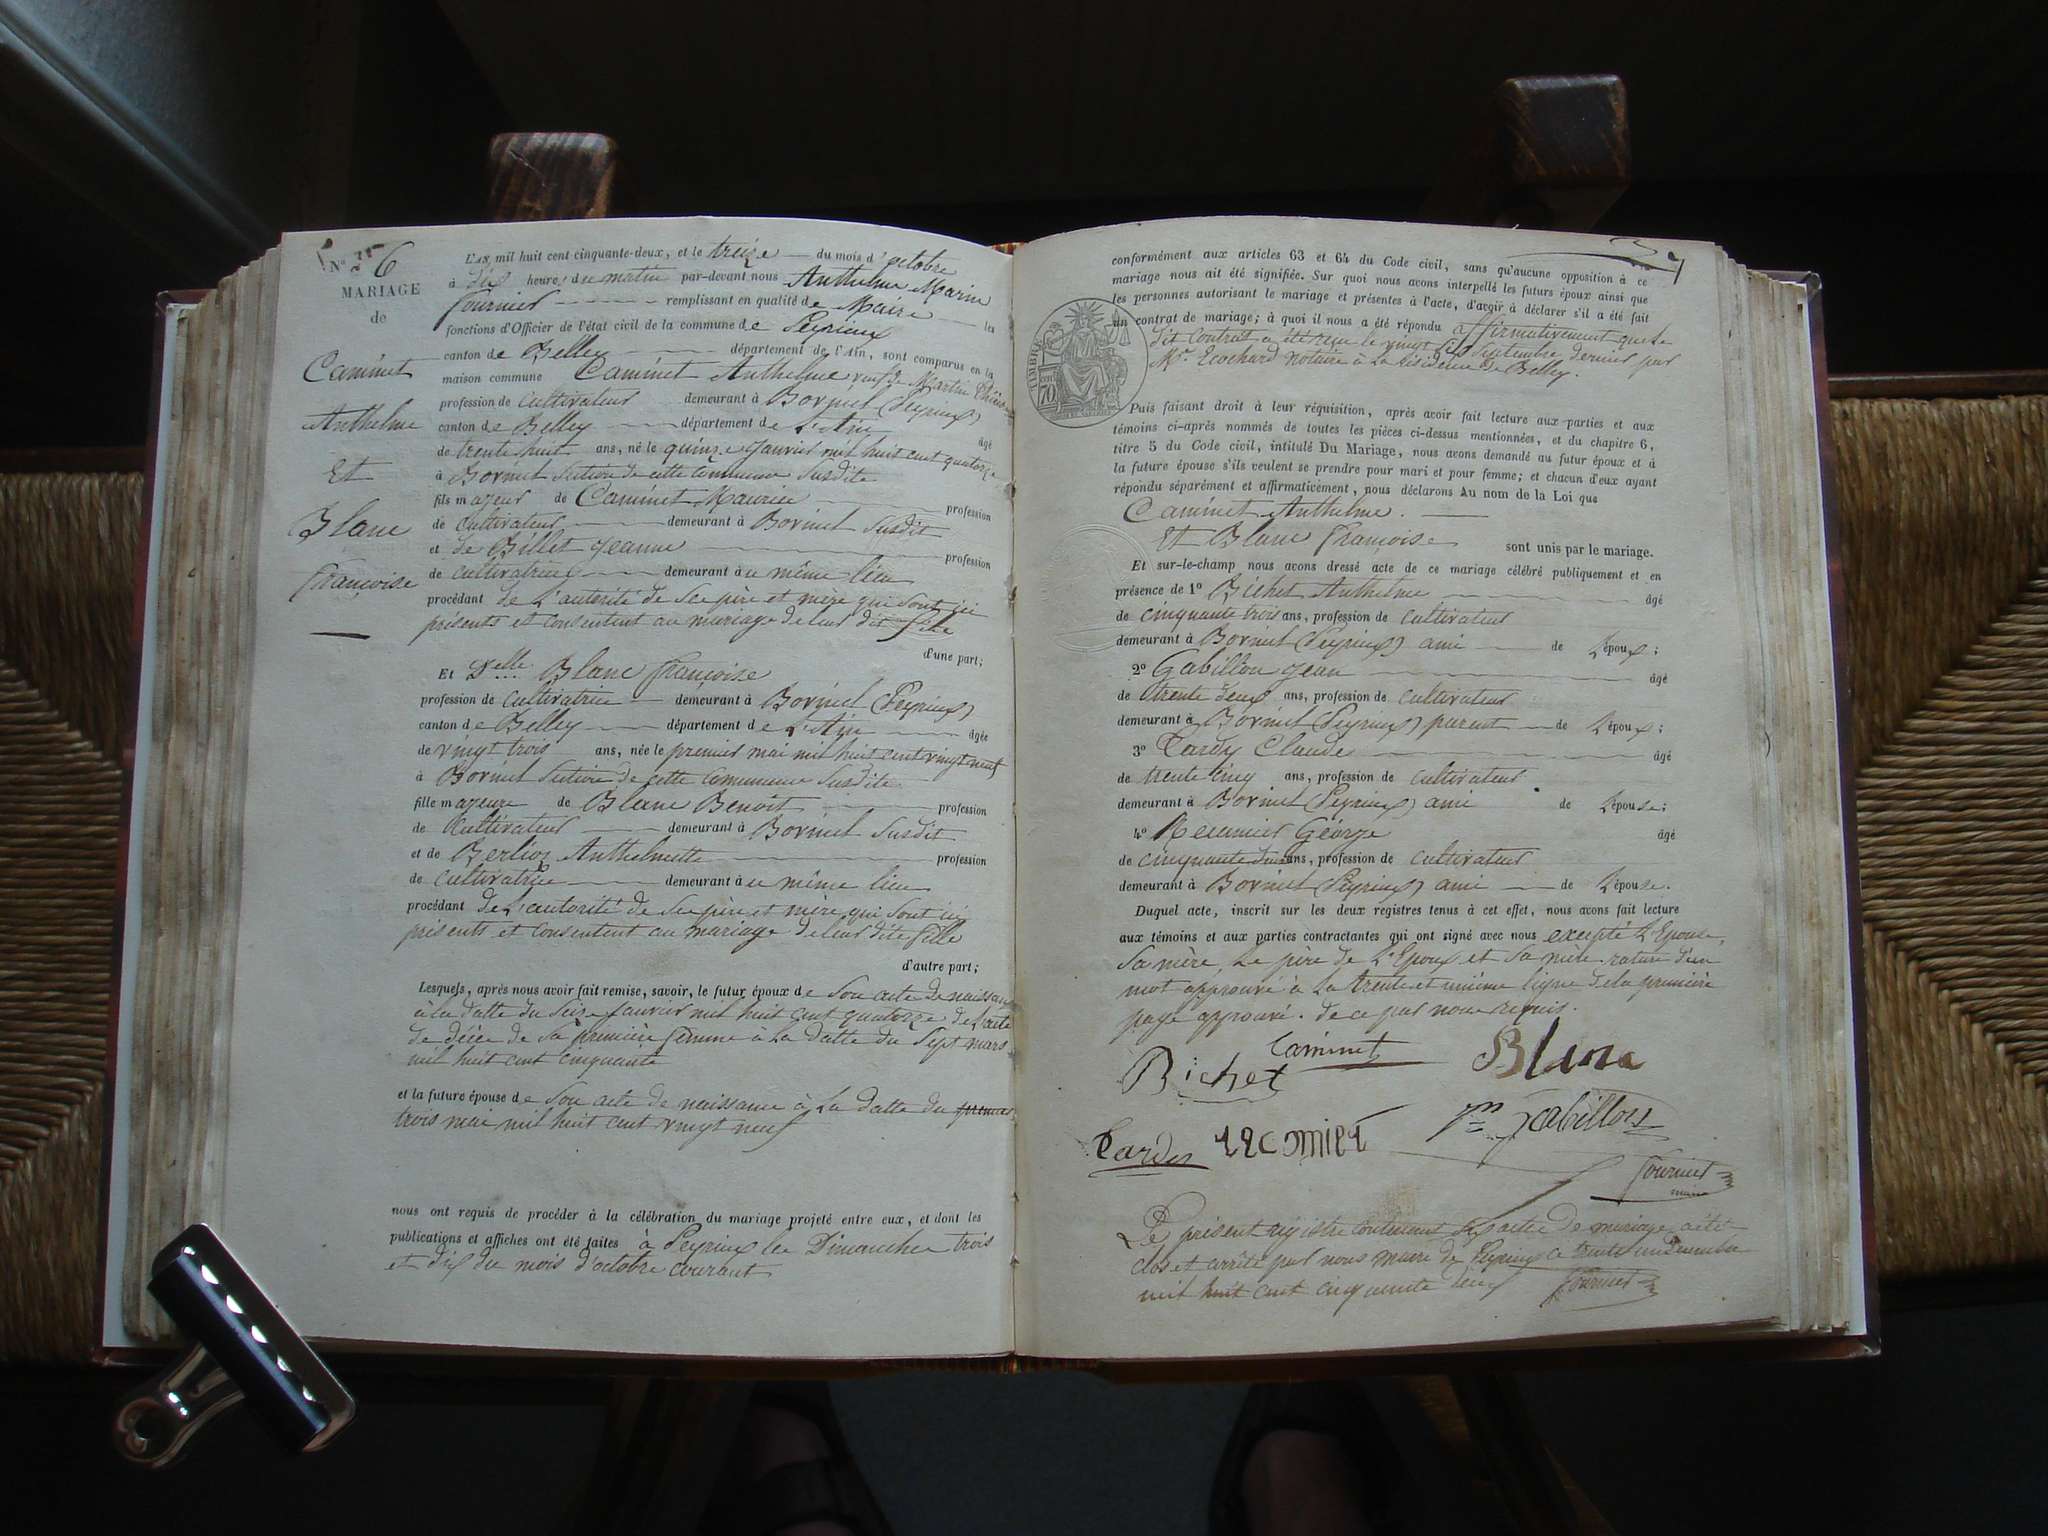 N° 6
MARIAGE
de
Caminet
Anthelme
Et
Blanc
françoise
L'AN mil huit cent cinquante-deux, et le treize du mois d'octobre
à dix heures du matin par-devant nous Anthelme Marin
fournier remplissant en qualité de Maire les
fonctions d'Officier de l'état civil de la commune de Peyrieux
canton de Belley département de l'Ain, sont comparus en la
maison commune Caminet Anthelme veuf de Martin
profession de cultivateur demeurant à Bovinel (Peyrieux)
canton de Belley département de L'Ain âgé
de trente huit ans, né le quinze janvier mil huit cent quatorze
à Bovinel section de cette commune susdite
fils majeur de Caminet Maurice profession
de cultivateur demeurant à Bovinel susdit
et de Billet jeanne profession
de cultivatrice demeurant au même lieu
procédant de L'autorité de ses père et mère qui sont ici
présents et consentent au mariage de leur dit fils
d'une part;
Et Delle Blanc françoise
profession de cultivatrice demeurant à Bovinel (Peyrieux)
canton de Belley département de L'Ain âgée
de vingt trois ans, née le premier mai mil huit cent vingt neuf
à Bovinel section de cette commune susdite
fille majeure de Blanc Benoit profession
de cultivateur demeurant à Bovinel susdit
et de Berlioz Anthelmette profession
de cultivatrice demeurant au même lieu
procédant de L'autorité de ses père et mère qui sont ici
présents et consentent au mariage de leur dite fille
d'autre part;
Lesquels, après nous avoir fait remise, savoir, le futur époux de son acte de naissance
à la datte du seize janvier mil huit cent quatorze de l'acte
de décès de sa première femme à la datte du sept mars
mil huit cent cinquante
et la future épouse de son acte de naissance à la datte du premier
trois mai mil huit cent vingt neuf
nous ont requis de procéder à la célébration du mariage projeté entre eux, et dont les
publications et affiches ont été faites à Peyrieux les Dimanches trois
et dix du mois d'octobre courant
7
conformément aux articles 63 et 64 du Code civil, sans qu'aucune opposition à ce
mariage nous ait été signifiée. Sur quoi nous avons interpellé les futurs époux ainsi que
les personnes autorisant le mariage et présentes à l'acte, d'avoir à déclarer s'il a été fait
un contrat de mariage; à quoi il nous a été répondu affirmativement que le
dit contrat a été reçu le vingt six septembre dernier par
Mr. Ecochard notaire à la résidence de Belley.
TIMBRE
70
Puis faisant droit à leur réquisition, après avoir fait lecture aux parties et aux
témoins ci-après nommés de toutes les pièces ci-dessus mentionnées, et du chapitre 6,
titre 5 du Code civil, intitulé Du Mariage, nous avons demandé au futur époux et à
la future épouse s'ils veulent se prendre pour mari et pour femme; et chacun d'eux ayant
répondu séparément et affirmativement, nous déclarons Au nom de la Loi que
Caminet Anthelme.
Et Blanc françoise sont unis par le mariage.
Et sur-le-champ nous avons dressé acte de ce mariage célébré publiquement et en
présence de 1° Bichet Anthelme âgé
de cinquante trois ans, profession de cultivateur
demeurant à Bovinel (Peyrieux) ami de L'époux;
2° Gabillon jean âgé
de trente deux ans, profession de cultivateur
demeurant à Bovinel (Peyrieux) parent de L'époux;
3° Tardy Claude âgé
de trente cinq ans, profession de cultivateur
demeurant à Bovinel (Peyrieux) ami de L'épouse;
4° Récamier George âgé
de cinquante deux ans, profession de cultivateur
demeurant à Bovinel (Peyrieux) ami de L'épouse.
Duquel acte, inscrit sur les deux registres tenus à cet effet, nous avons fait lecture
aux témoins et aux parties contractantes qui ont signé avec nous excepté L'Epouse,
sa mère, Le père de L'Epoux et sa mère. rature d'un
mot approuvé à La trente et unième ligne de la première
page approuvé. de ce par nous requis.
Bichet Caminet Blanc
Tardy recamier Gabillon
fournier
maire
Le présent registre contenant six actes de mariage a été
clos et arrêté par nous maire de Peyrieux ce trente un décembre
mil huit cent cinquante deux fournier